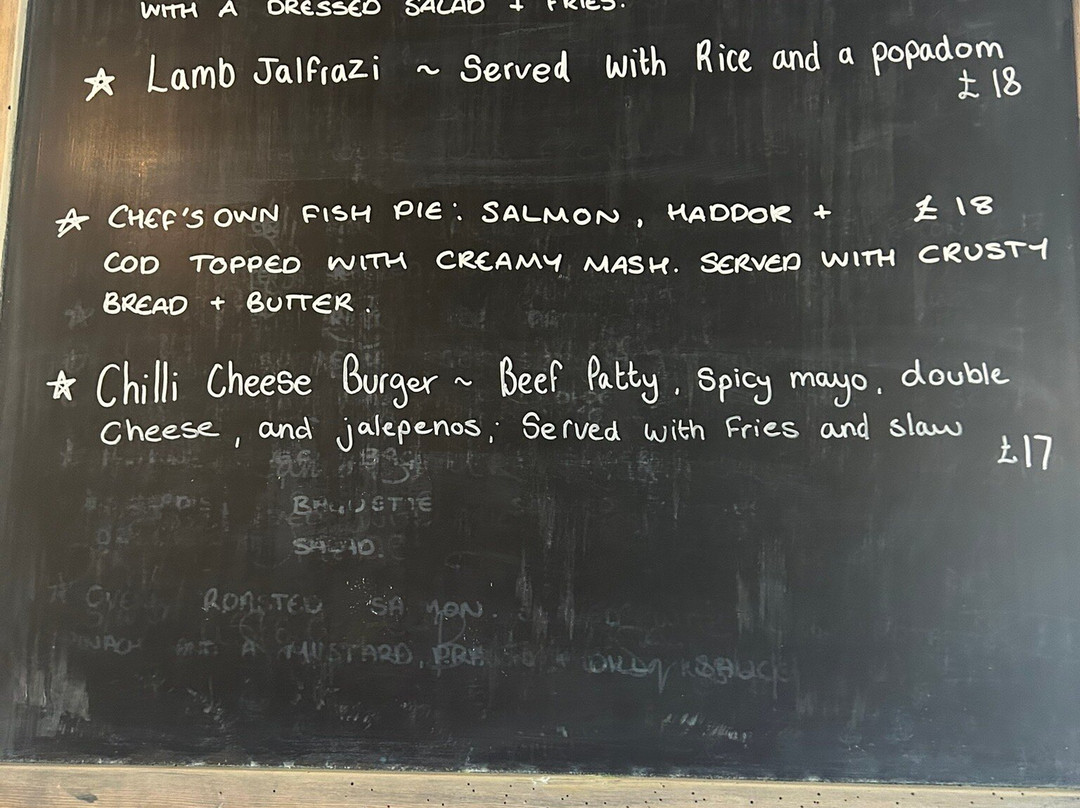 WITH A DRESSED SALAD + FRIES.
☆ Lamb Jalfrazi ~ Served with Rice and a popadom
£18
☆ CHEF'S OWN FISH PIE: SALMON, HADDOK + £18
COD TOPPED WITH CREAMY MASH. SERVED WITH CRUSTY
BREAD + BUTTER.
☆ Chilli Cheese Burger ~ Beef Patty, Spicy mayo, double
Cheese, and jalepenos; Served with Fries and slaw
£17
ROASTED
A MUSTARD,